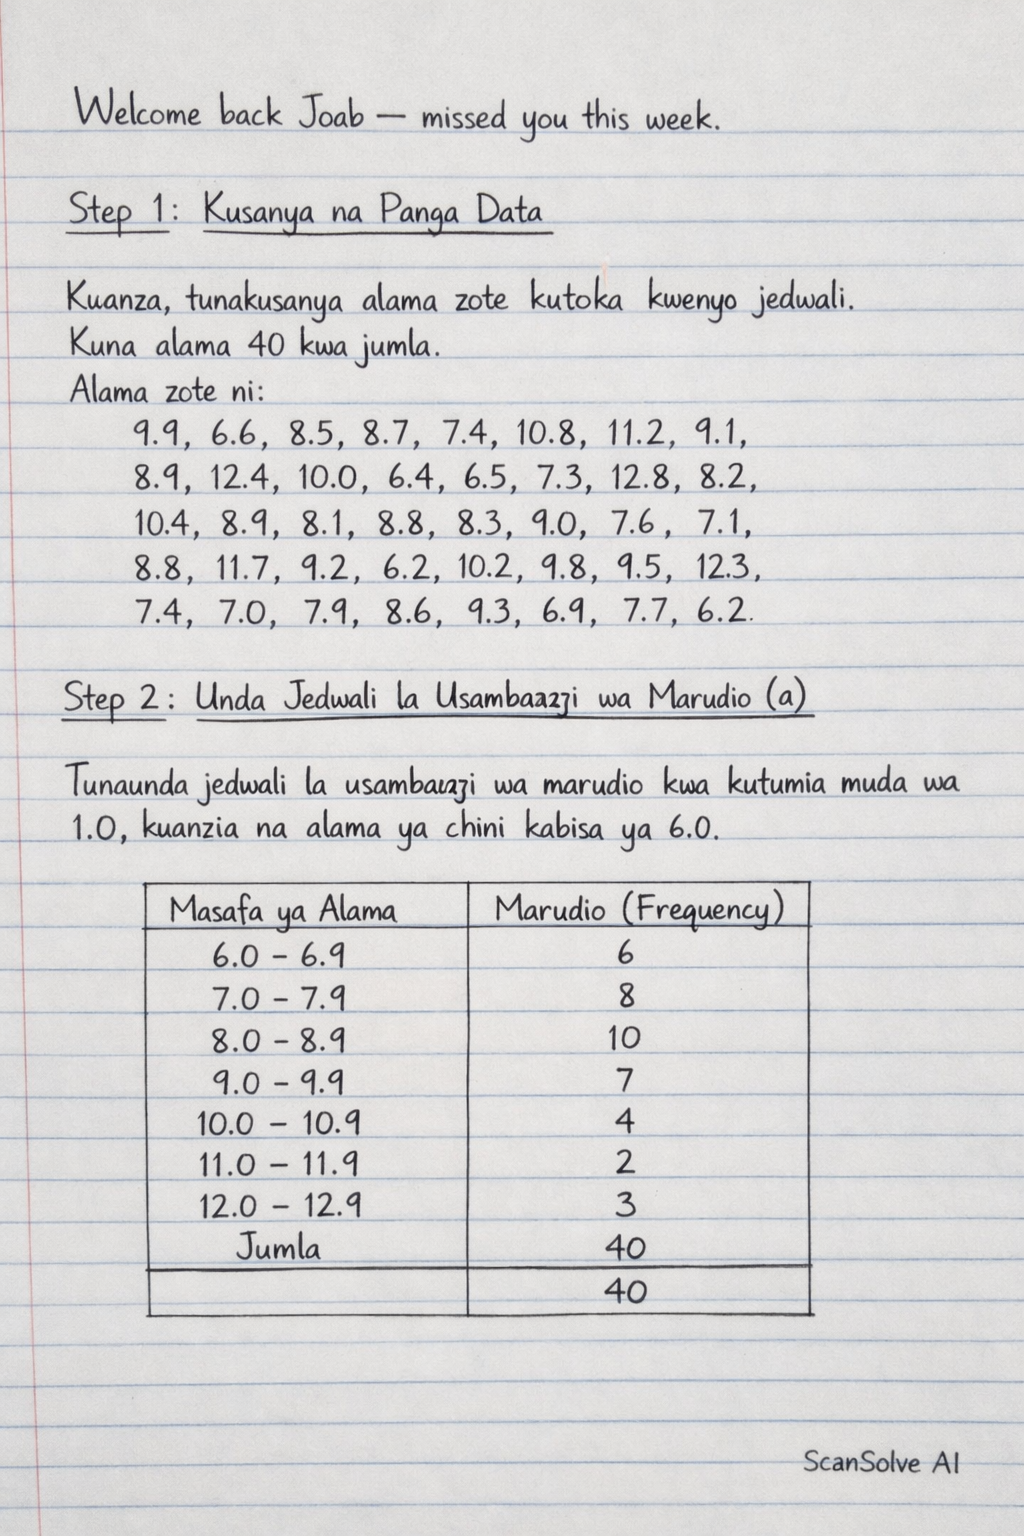 Welcome back Joab — missed you this week.
Step 1: Kusanya na Panga Data
Kuanza, tunakusanya alama zote kutoka kwenyo jedwali.
Kuna alama 40 kwa jumla.
Alama zote ni:
9.9, 6.6, 8.5, 8.7, 7.4, 10.8, 11.2, 9.1,
8.9, 12.4, 10.0, 6.4, 6.5, 7.3, 12.8, 8.2,
10.4, 8.9, 8.1, 8.8, 8.3, 9.0, 7.6, 7.1,
8.8, 11.7, 9.2, 6.2, 10.2, 9.8, 9.5, 12.3,
7.4, 7.0, 7.9, 8.6, 9.3, 6.9, 7.7, 6.2.
Step 2: Unda Jedwali la wa Marudio (a)
Tunaunda jedwali la wa marudio kwa kutumia muda wa
1.0, kuanzia na alama ya chini kabisa ya 6.0.
Masafa ya Alama Marudio (Frequency)
6.0 – 6.9 6
7.0 – 7.9 8
8.0 – 8.9 10
9.0 – 9.9 7
10.0 – 10.9 4
11.0 – 11.9 2
12.0 – 12.9 3
Jumla 40
40
ScanSolve AI